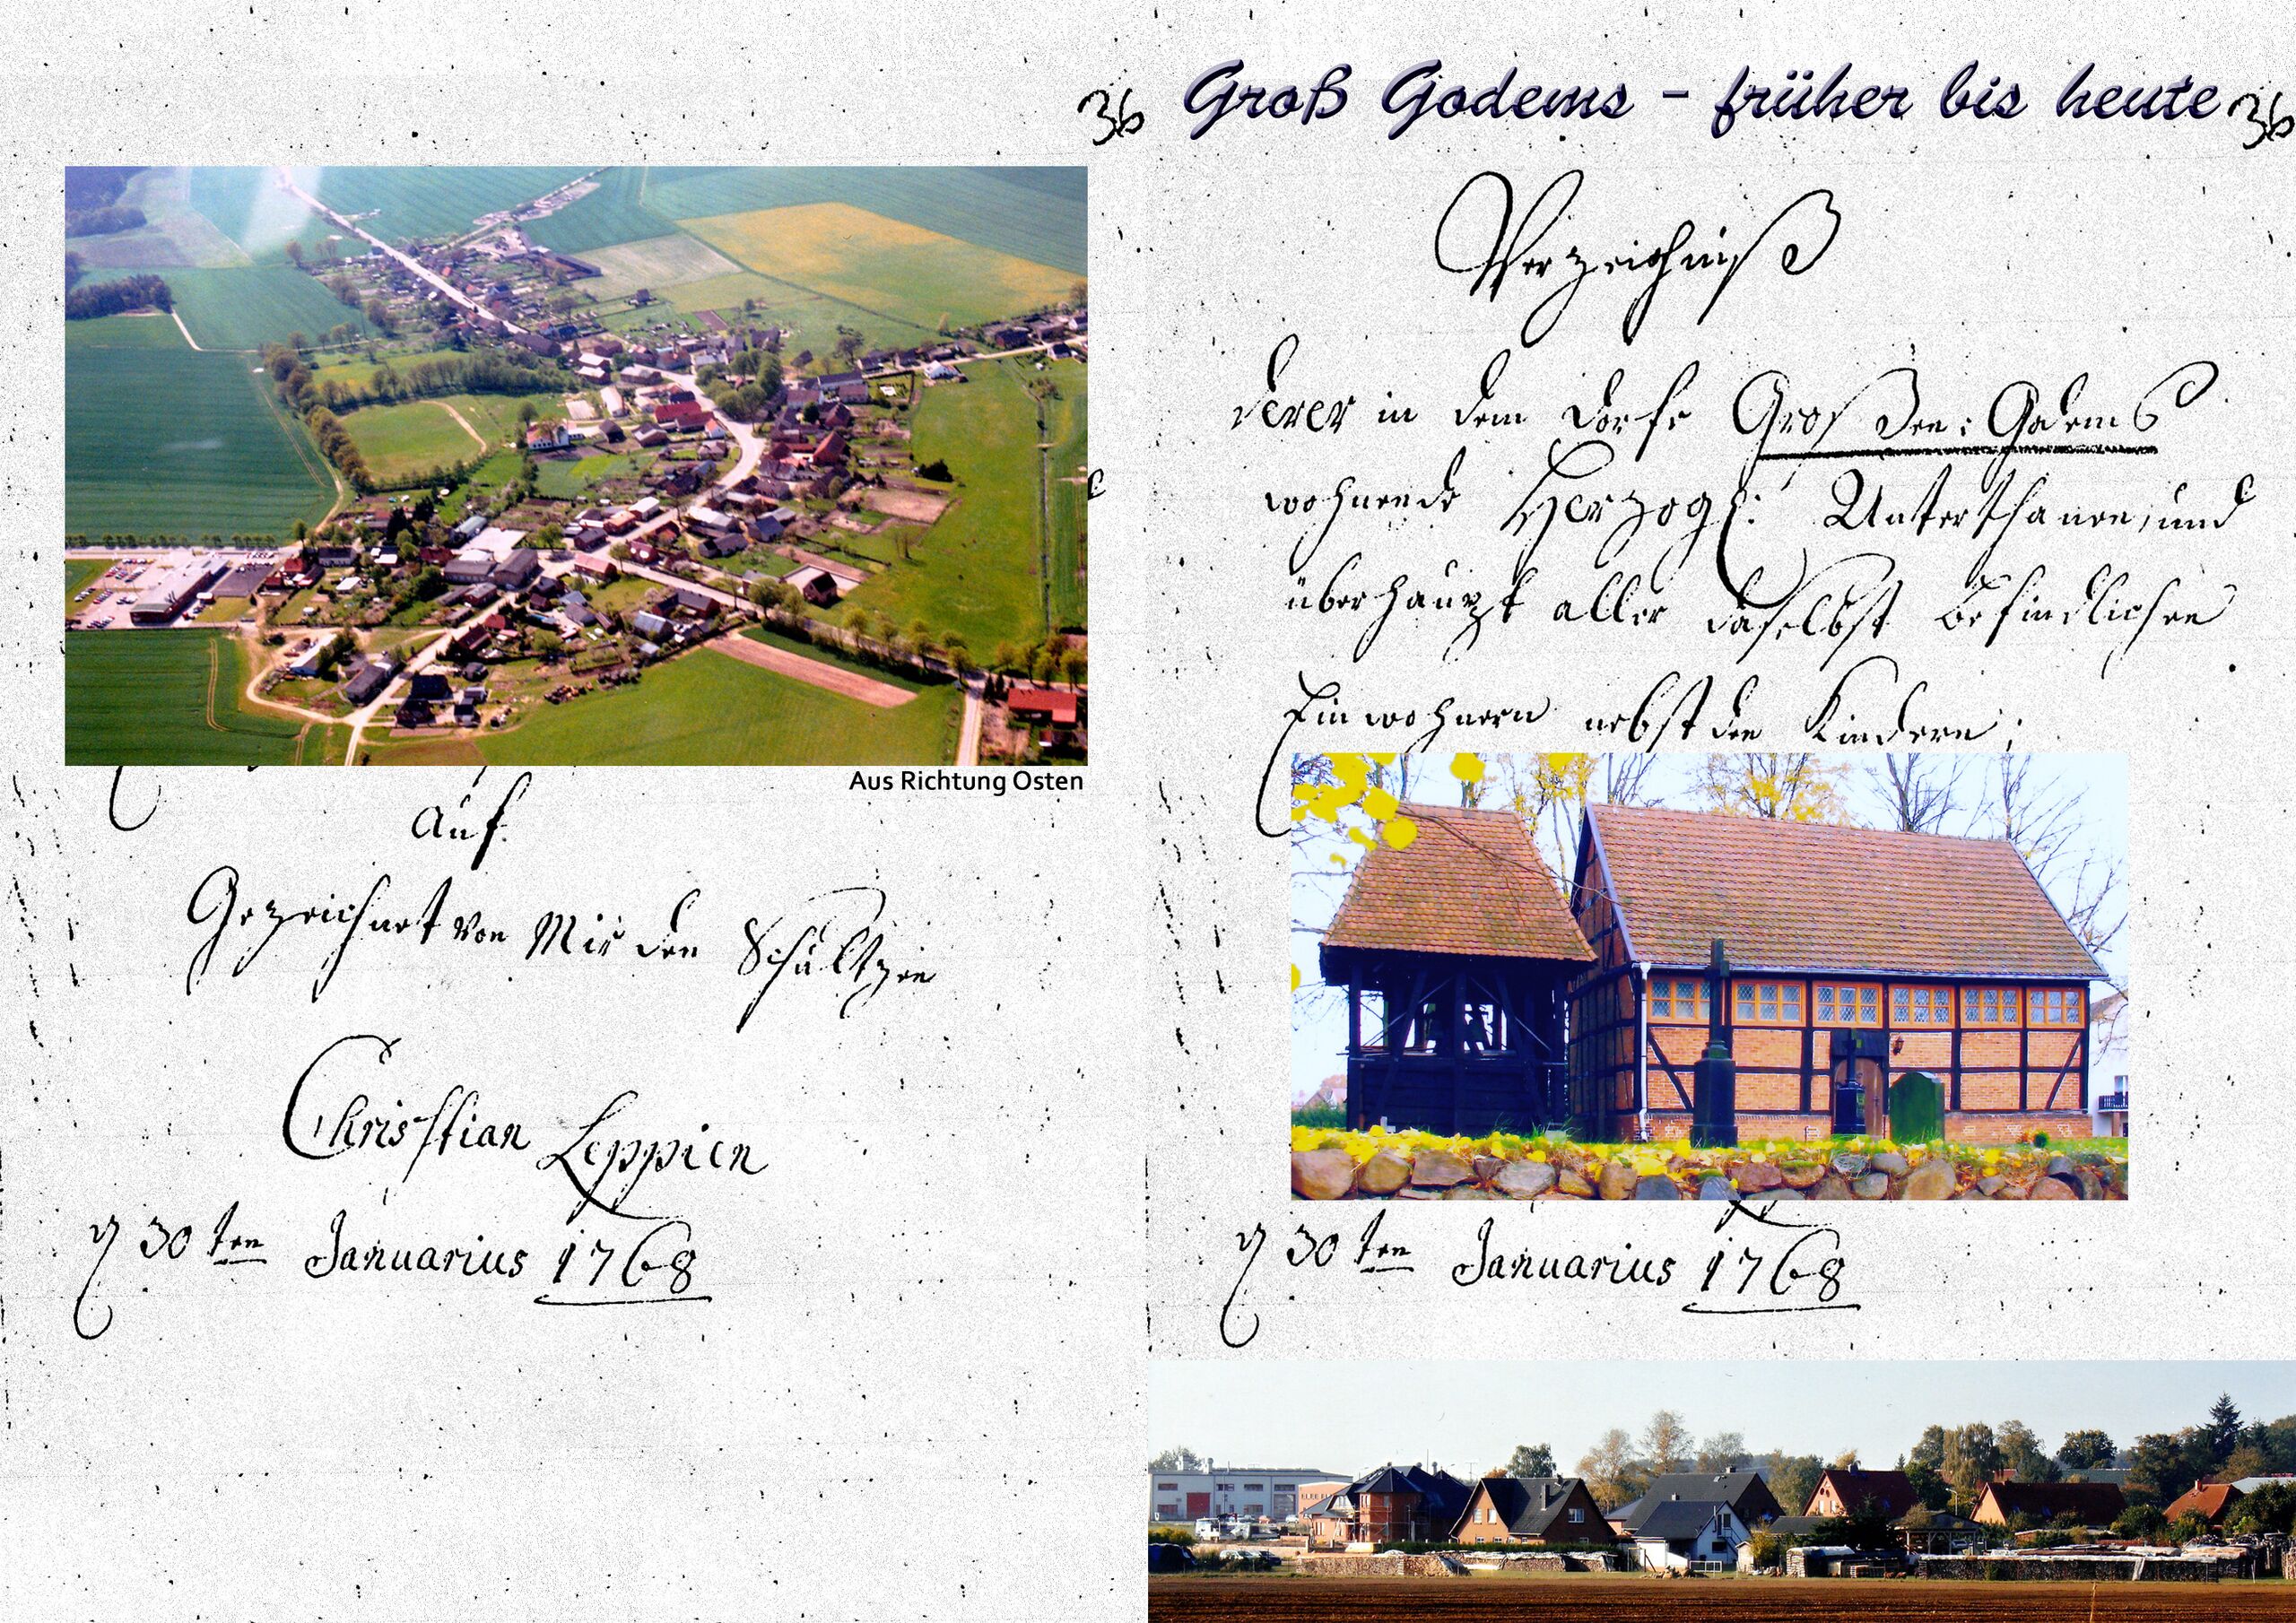 36
Aus Richtung Osten
Auf
Gezeichnet von Mir den Schültzen
Christian Leppien
30 ten Januarius 1768
Groß Godems - früher bis heute 36
Verzeichniß
derer in dem Dorfe Großen: Godems
wohnende Herzogl: Unterthanen, und
überhaupt aller daselbst befindlichen
Einwohnern nebst den Kindern;
30 ten Januarius 1768